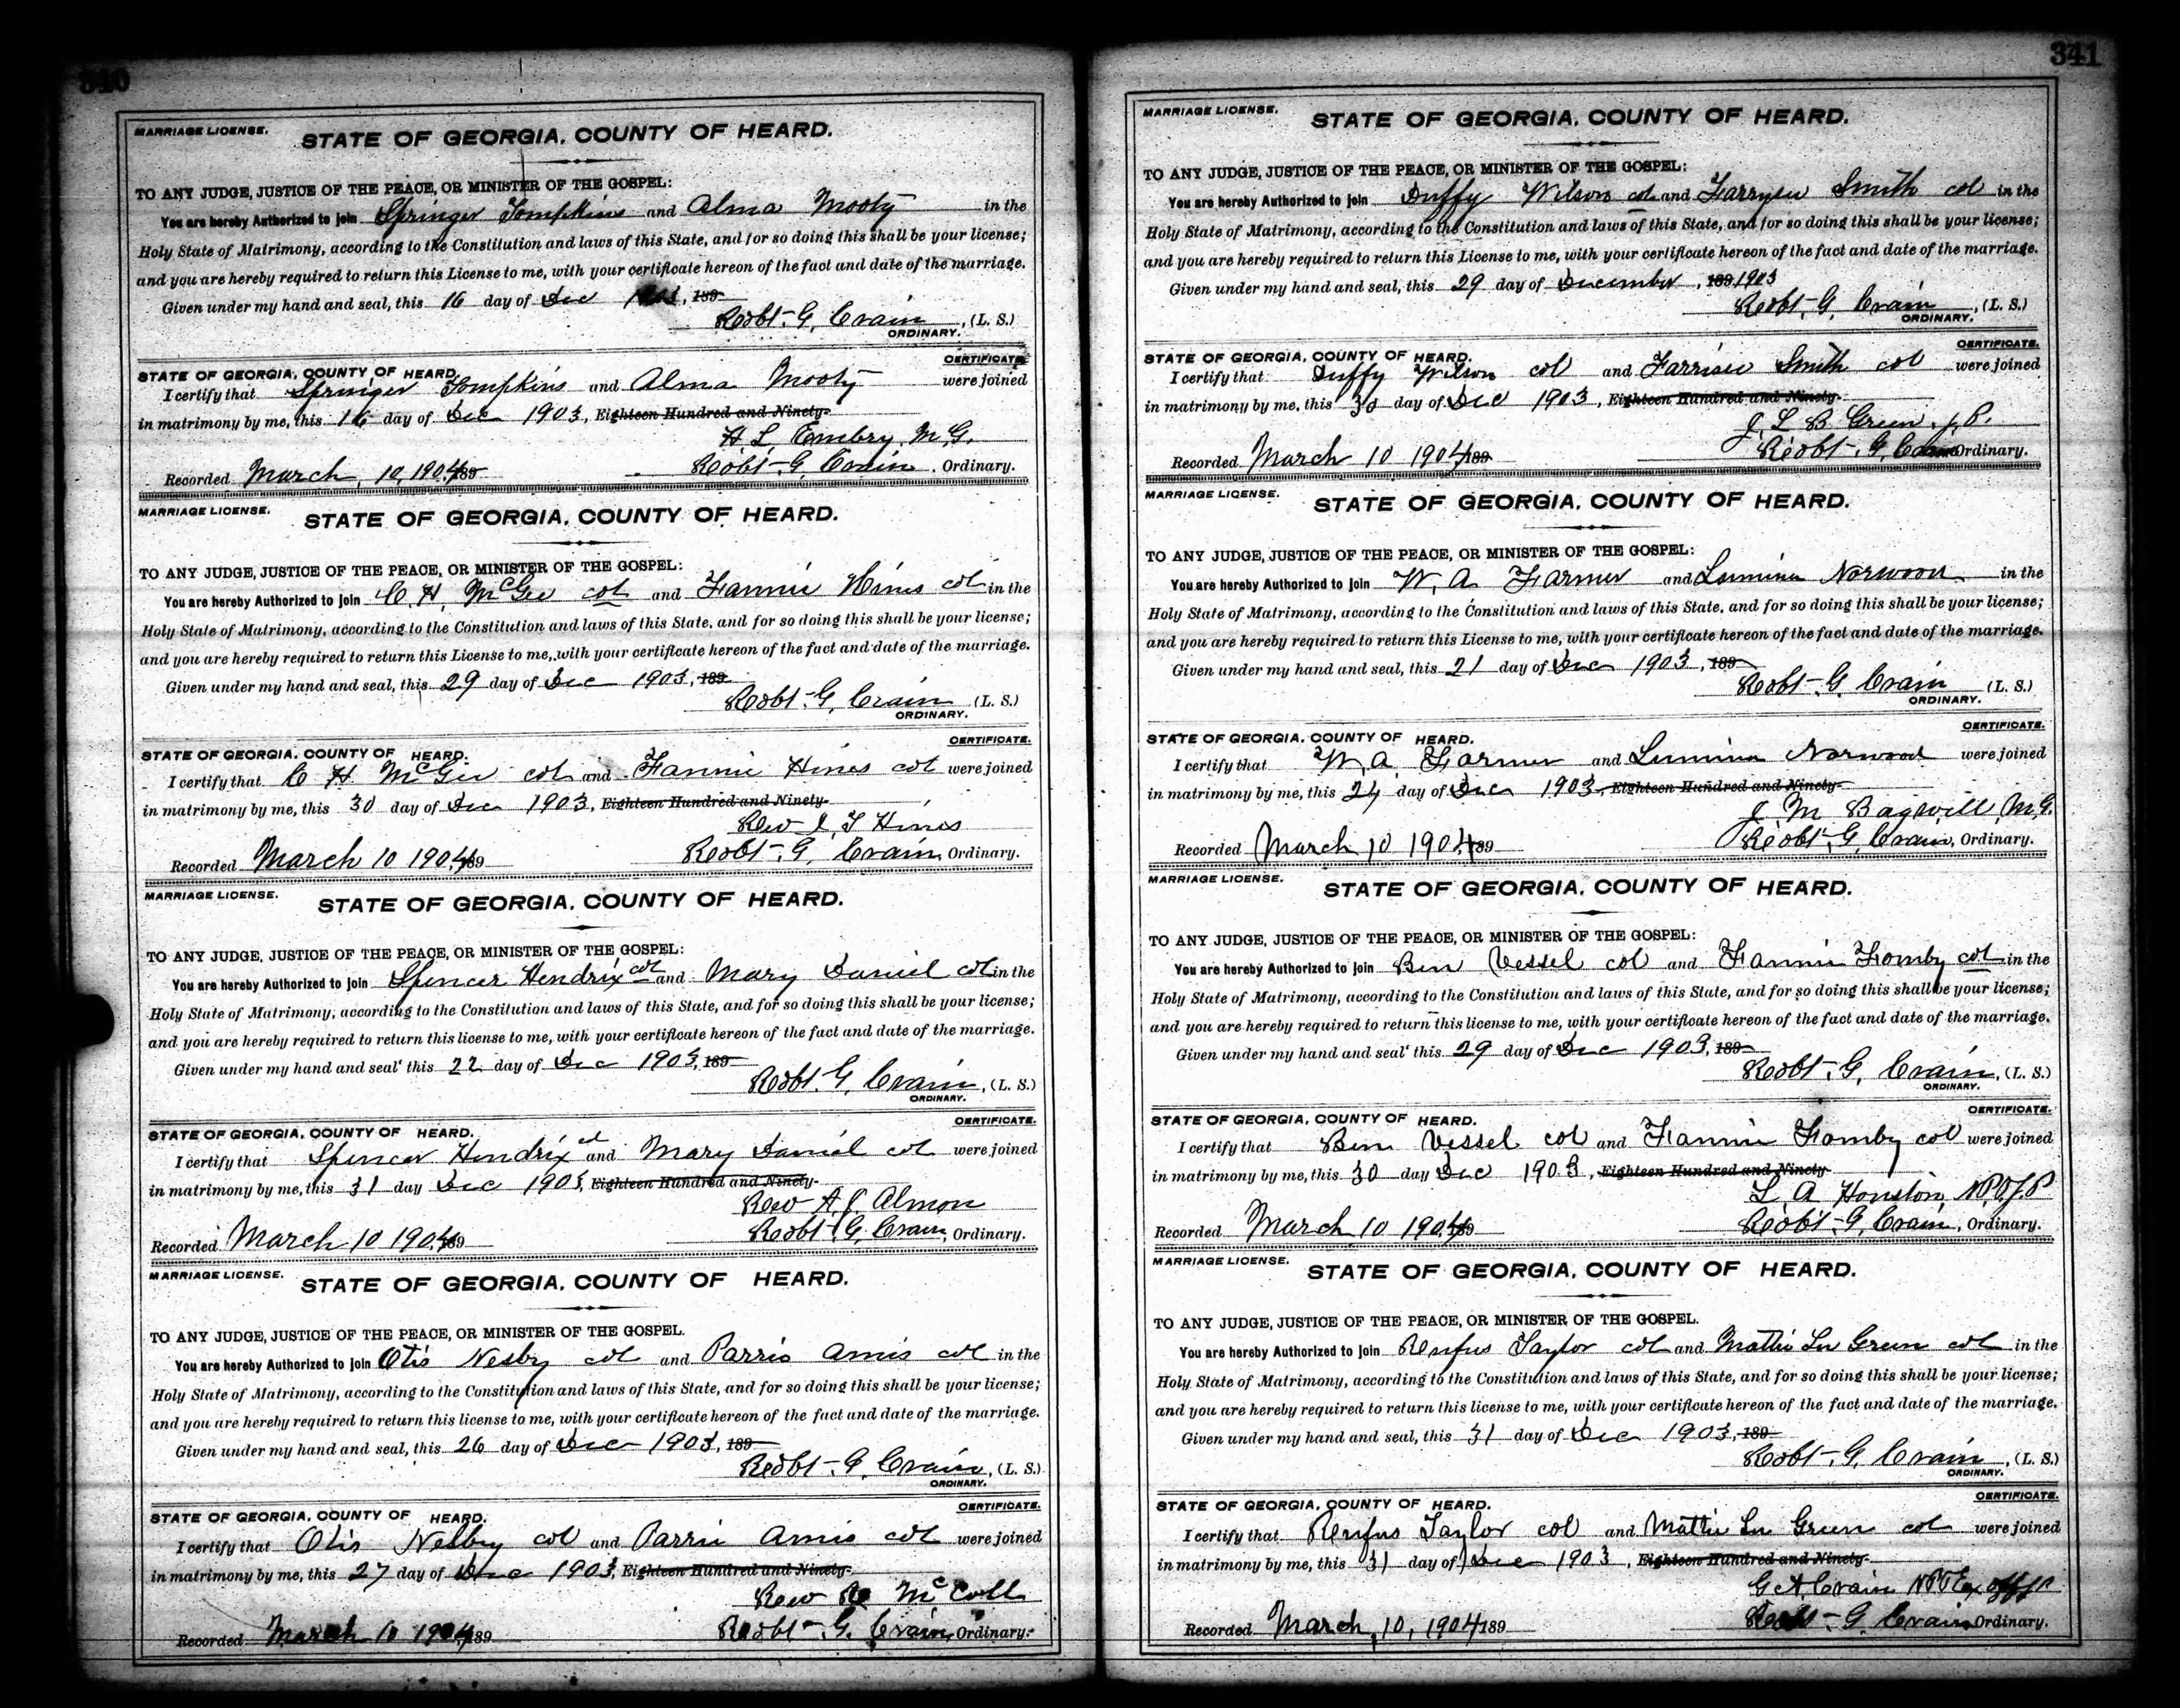 340
MARRIAGE LICENSE.
STATE OF GEORGIA, COUNTY OF HEARD.
TO ANY JUDGE, JUSTICE OF THE PEACE, OR MINISTER OF THE GOSPEL:
You are hereby Authorized to join Springer Tompkins and Alma Mooty in the
Holy State of Matrimony, according to the Constitution and laws of this State, and for so doing this shall be your license;
and you are hereby required to return this License to me, with your certificate hereon of the fact and date of the marriage.
Given under my hand and seal, this 16 day of Dec 1903, 189
Robt. G. Crain, (L. S.)
ORDINARY.
CERTIFICATE.
STATE OF GEORGIA, COUNTY OF HEARD.
I certify that Springer Tompkins and Alma Mooty were joined
in matrimony by me, this 16 day of Dec 1903, Eighteen Hundred and Ninety-
H L Embry M.G.
Recorded March, 10, 1904 189 Robt. G. Crain, Ordinary.
MARRIAGE LICENSE.
STATE OF GEORGIA, COUNTY OF HEARD.
TO ANY JUDGE, JUSTICE OF THE PEACE, OR MINISTER OF THE GOSPEL:
You are hereby Authorized to join C. H. McGee col and Fannie Hines col in the
Holy State of Matrimony, according to the Constitution and laws of this State, and for so doing this shall be your license;
and you are hereby required to return this License to me, with your certificate hereon of the fact and date of the marriage.
Given under my hand and seal, this 29 day of Dec 1903, 189
Robt. G. Crain (L. S.)
ORDINARY.
CERTIFICATE.
STATE OF GEORGIA, COUNTY OF HEARD.
I certify that C H McGee col and Fannie Hines col were joined
in matrimony by me, this 30 day of Dec 1903, Eighteen Hundred and Ninety-
Rev J. T Hines
Recorded March 10 1904 189 Robt. G. Crain, Ordinary.
MARRIAGE LICENSE.
STATE OF GEORGIA, COUNTY OF HEARD.
TO ANY JUDGE, JUSTICE OF THE PEACE, OR MINISTER OF THE GOSPEL:
You are hereby Authorized to join Spencer Hendrix col and Mary Daniel col in the
Holy State of Matrimony, according to the Constitution and laws of this State, and for so doing this shall be your license;
and you are hereby required to return this license to me, with your certificate hereon of the fact and date of the marriage.
Given under my hand and seal this 22 day of Dec 1903, 189
Robt. G. Crain, (L. S.)
ORDINARY.
CERTIFICATE.
STATE OF GEORGIA, COUNTY OF HEARD.
I certify that Spencer Hendrix col and Mary Daniel col were joined
in matrimony by me, this 31 day Dec 1903, Eighteen Hundred and Ninety-
Rev A. J. Almon
Recorded March 10 1904 189 Robt. G. Crain, Ordinary.
MARRIAGE LICENSE.
STATE OF GEORGIA, COUNTY OF HEARD.
TO ANY JUDGE, JUSTICE OF THE PEACE, OR MINISTER OF THE GOSPEL.
You are hereby Authorized to join Otis Nesby col and Parris Amis col in the
Holy State of Matrimony, according to the Constitution and laws of this State, and for so doing this shall be your license;
and you are hereby required to return this license to me, with your certificate hereon of the fact and date of the marriage.
Given under my hand and seal, this 26 day of Dec 1903, 189
Robt. G. Crain, (L. S.)
ORDINARY.
CERTIFICATE.
STATE OF GEORGIA, COUNTY OF HEARD.
I certify that Otis Nesby col and Parris Amis col were joined
in matrimony by me, this 27 day of Dec 1903, Eighteen Hundred and Ninety-
Rev McColl
Recorded March 10 1904 189 Robt. G. Crain, Ordinary.
341
MARRIAGE LICENSE.
STATE OF GEORGIA, COUNTY OF HEARD.
TO ANY JUDGE, JUSTICE OF THE PEACE, OR MINISTER OF THE GOSPEL:
You are hereby Authorized to join Duffy Wilson col and Smith col in the
Holy State of Matrimony, according to the Constitution and laws of this State, and for so doing this shall be your license;
and you are hereby required to return this License to me, with your certificate hereon of the fact and date of the marriage.
Given under my hand and seal, this 29 day of December, 189 1903
Robt. G. Crain, (L. S.)
ORDINARY.
CERTIFICATE.
STATE OF GEORGIA, COUNTY OF HEARD.
I certify that Duffy Wilson col and Smith col were joined
in matrimony by me, this 30 day of Dec 1903, Eighteen Hundred and Ninety-
J. L B Green J.P.
Recorded March 10 1904 189 Robt. G. Crain Ordinary.
MARRIAGE LICENSE.
STATE OF GEORGIA, COUNTY OF HEARD.
TO ANY JUDGE, JUSTICE OF THE PEACE, OR MINISTER OF THE GOSPEL:
You are hereby Authorized to join W. A Farmer and Norwood in the
Holy State of Matrimony, according to the Constitution and laws of this State, and for so doing this shall be your license;
and you are hereby required to return this License to me, with your certificate hereon of the fact and date of the marriage.
Given under my hand and seal, this 21 day of Dec 1903, 189
Robt. G. Crain (L. S.)
ORDINARY.
CERTIFICATE.
STATE OF GEORGIA, COUNTY OF HEARD.
I certify that W. A. Farmer and Norwood were joined
in matrimony by me, this 24 day of Dec 1903, Eighteen Hundred and Ninety-
J. M Bagwill, M.G.
Recorded March 10 1904 189 Robt. G. Crain, Ordinary.
MARRIAGE LICENSE.
STATE OF GEORGIA, COUNTY OF HEARD.
TO ANY JUDGE, JUSTICE OF THE PEACE, OR MINISTER OF THE GOSPEL:
You are hereby Authorized to join Ben Vessel col and Fannie Fomby col in the
Holy State of Matrimony, according to the Constitution and laws of this State, and for so doing this shall be your license;
and you are hereby required to return this license to me, with your certificate hereon of the fact and date of the marriage.
Given under my hand and seal this 29 day of Dec 1903, 189
Robt. G. Crain, (L. S.)
ORDINARY.
CERTIFICATE.
STATE OF GEORGIA, COUNTY OF HEARD.
I certify that Ben Vessel col and Fannie Fomby col were joined
in matrimony by me, this 30 day Dec 1903, Eighteen Hundred and Ninety
L A Houston
Recorded March 10 1904 189 Robt. G. Crain, Ordinary.
MARRIAGE LICENSE.
STATE OF GEORGIA, COUNTY OF HEARD.
TO ANY JUDGE, JUSTICE OF THE PEACE, OR MINISTER OF THE GOSPEL.
You are hereby Authorized to join Rufus Taylor col and Mattie Lu Green col in the
Holy State of Matrimony, according to the Constitution and laws of this State, and for so doing this shall be your license;
and you are hereby required to return this license to me, with your certificate hereon of the fact and date of the marriage.
Given under my hand and seal, this 31 day of Dec 1903, 189
Robt. G. Crain, (L. S.)
ORDINARY.
CERTIFICATE.
STATE OF GEORGIA, COUNTY OF HEARD.
I certify that Rufus Taylor col and Mattie Lu Green col were joined
in matrimony by me, this 31 day of Dec 1903, Eighteen Hundred and Ninety-
G A Crain
Recorded March, 10, 1904 189 Robt. G. Crain Ordinary.